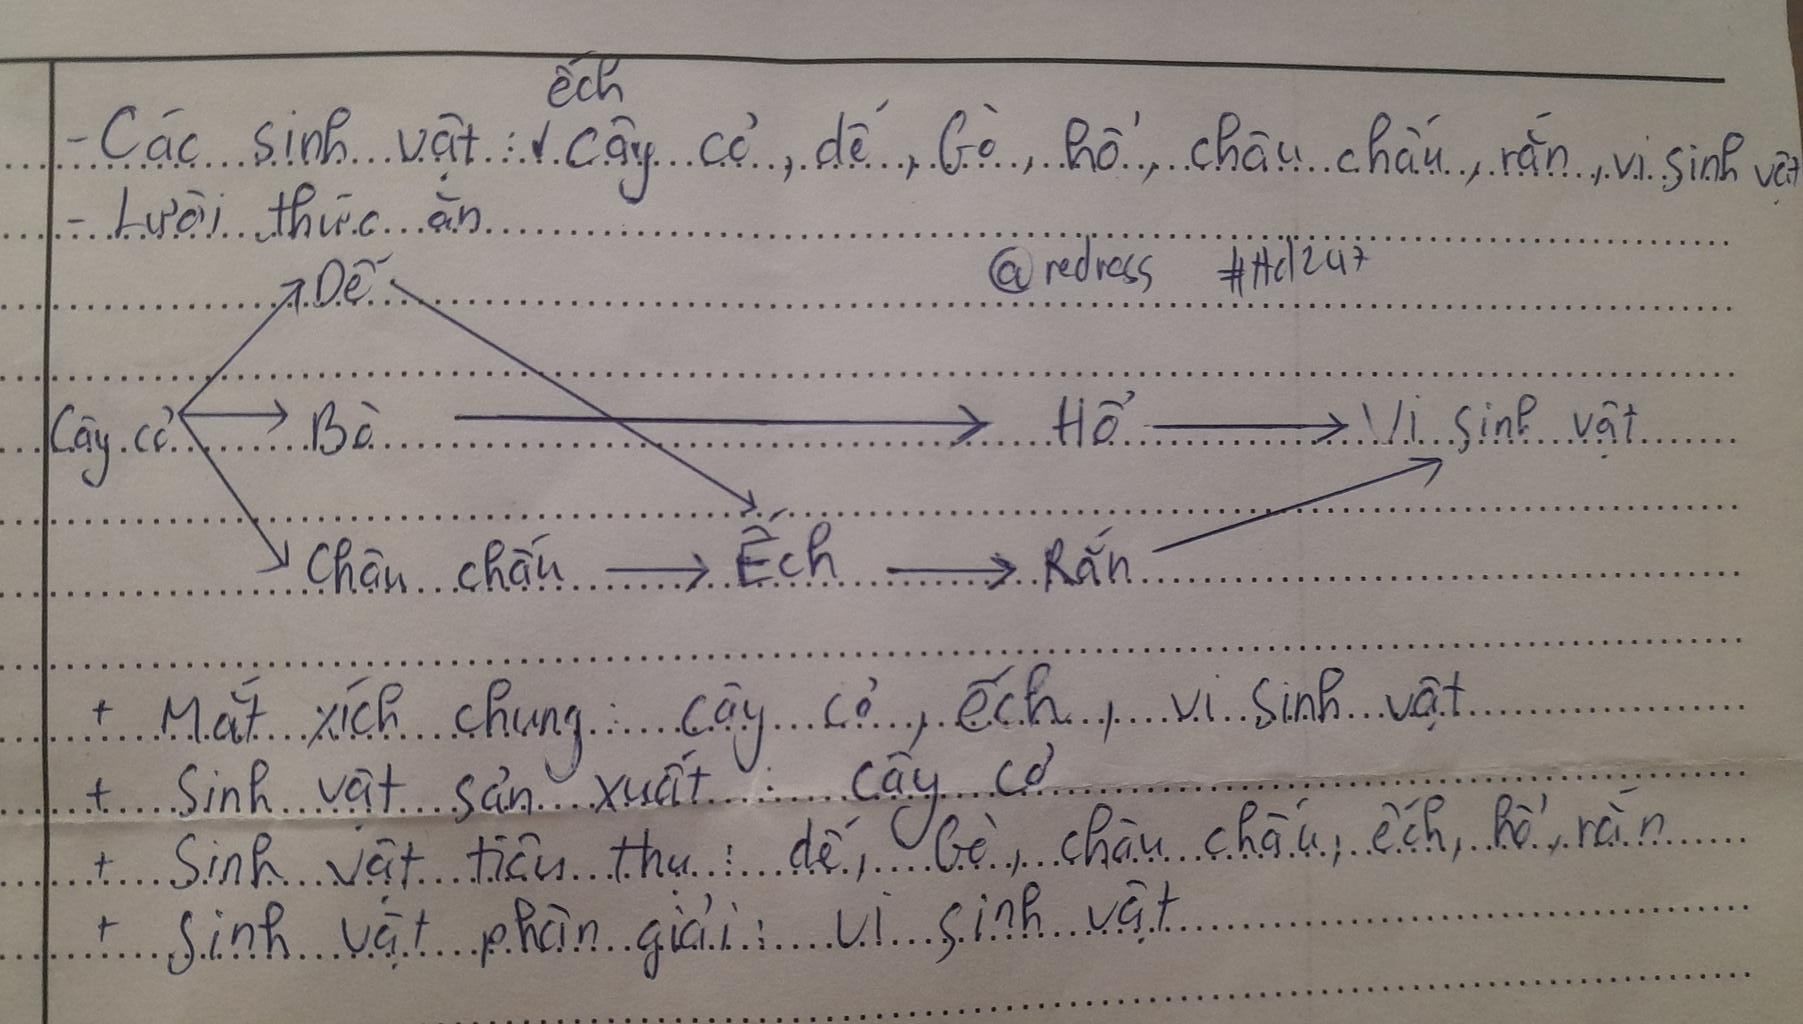 ếch
- Các sinh vật : cây cỏ, dế, bò, hổ, châu chấu, rắn, vi sinh vật
- Lưới thức ăn
@redress #Hd247
Dế
Cây cỏ Bò Hổ Vi sinh vật
Châu chấu Ếch Rắn
+ Mắt xích chung: cây cỏ, ếch, vi sinh vật
+ Sinh vật sản xuất : cây cỏ
+ Sinh vật tiêu thụ : dế, bò, châu chấu, ếch, hổ, rắn
+ Sinh vật phân giải: vi sinh vật